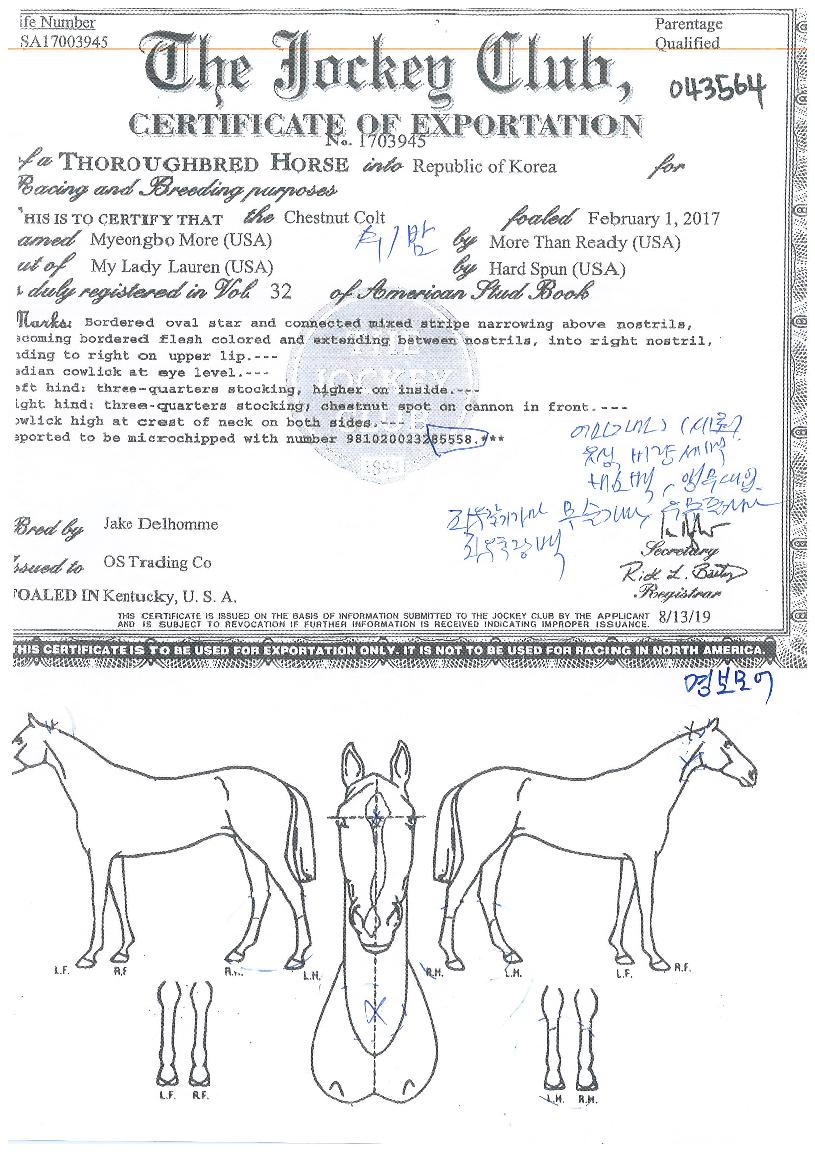 ife Number
SA17003945
Parentage
Qualified
The Jockey Club,
043564
CERTIFICATE OF EXPORTATION
No. 1703945
of a THOROUGHBRED HORSE into Republic of Korea for
Racing and Breeding purposes
THIS IS TO CERTIFY THAT the Chestnut Colt foaled February 1, 2017
amed Myeongbo More (USA) by More Than Ready (USA)
ut of My Lady Lauren (USA) by Hard Spun (USA)
duly registered in Vol. 32 of American Stud Book
Marks: Bordered oval star and connected mixed stripe narrowing above nostrils,
ecoming bordered flesh colored and extending between nostrils, into right nostril,
ding to right on upper lip.---
edian cowlick at eye level.---
eft hind: three-quarters stocking, higher on inside.---
ight hind: three-quarters stocking; chestnut spot on cannon in front.---
owlick high at crest of neck on both sides.---
eported to be microchipped with number 981020023285558.***
THE JOCKEY CLUB 1894
Bred by Jake Delhomme
Issued to OS Trading Co
FOALED IN Kentucky, U. S. A.
Secretary
Rick L. Bailey
Registrar
THIS CERTIFICATE IS ISSUED ON THE BASIS OF INFORMATION SUBMITTED TO THE JOCKEY CLUB BY THE APPLICANT
AND IS SUBJECT TO REVOCATION IF FURTHER INFORMATION IS RECEIVED INDICATING IMPROPER ISSUANCE.
8/13/19
THIS CERTIFICATE IS TO BE USED FOR EXPORTATION ONLY. IT IS NOT TO BE USED FOR RACING IN NORTH AMERICA
명보모어
L.F. R.F R.H. L.H. R.H. L.H. L.F. R.F.
L.F. R.F. L.H. R.H.